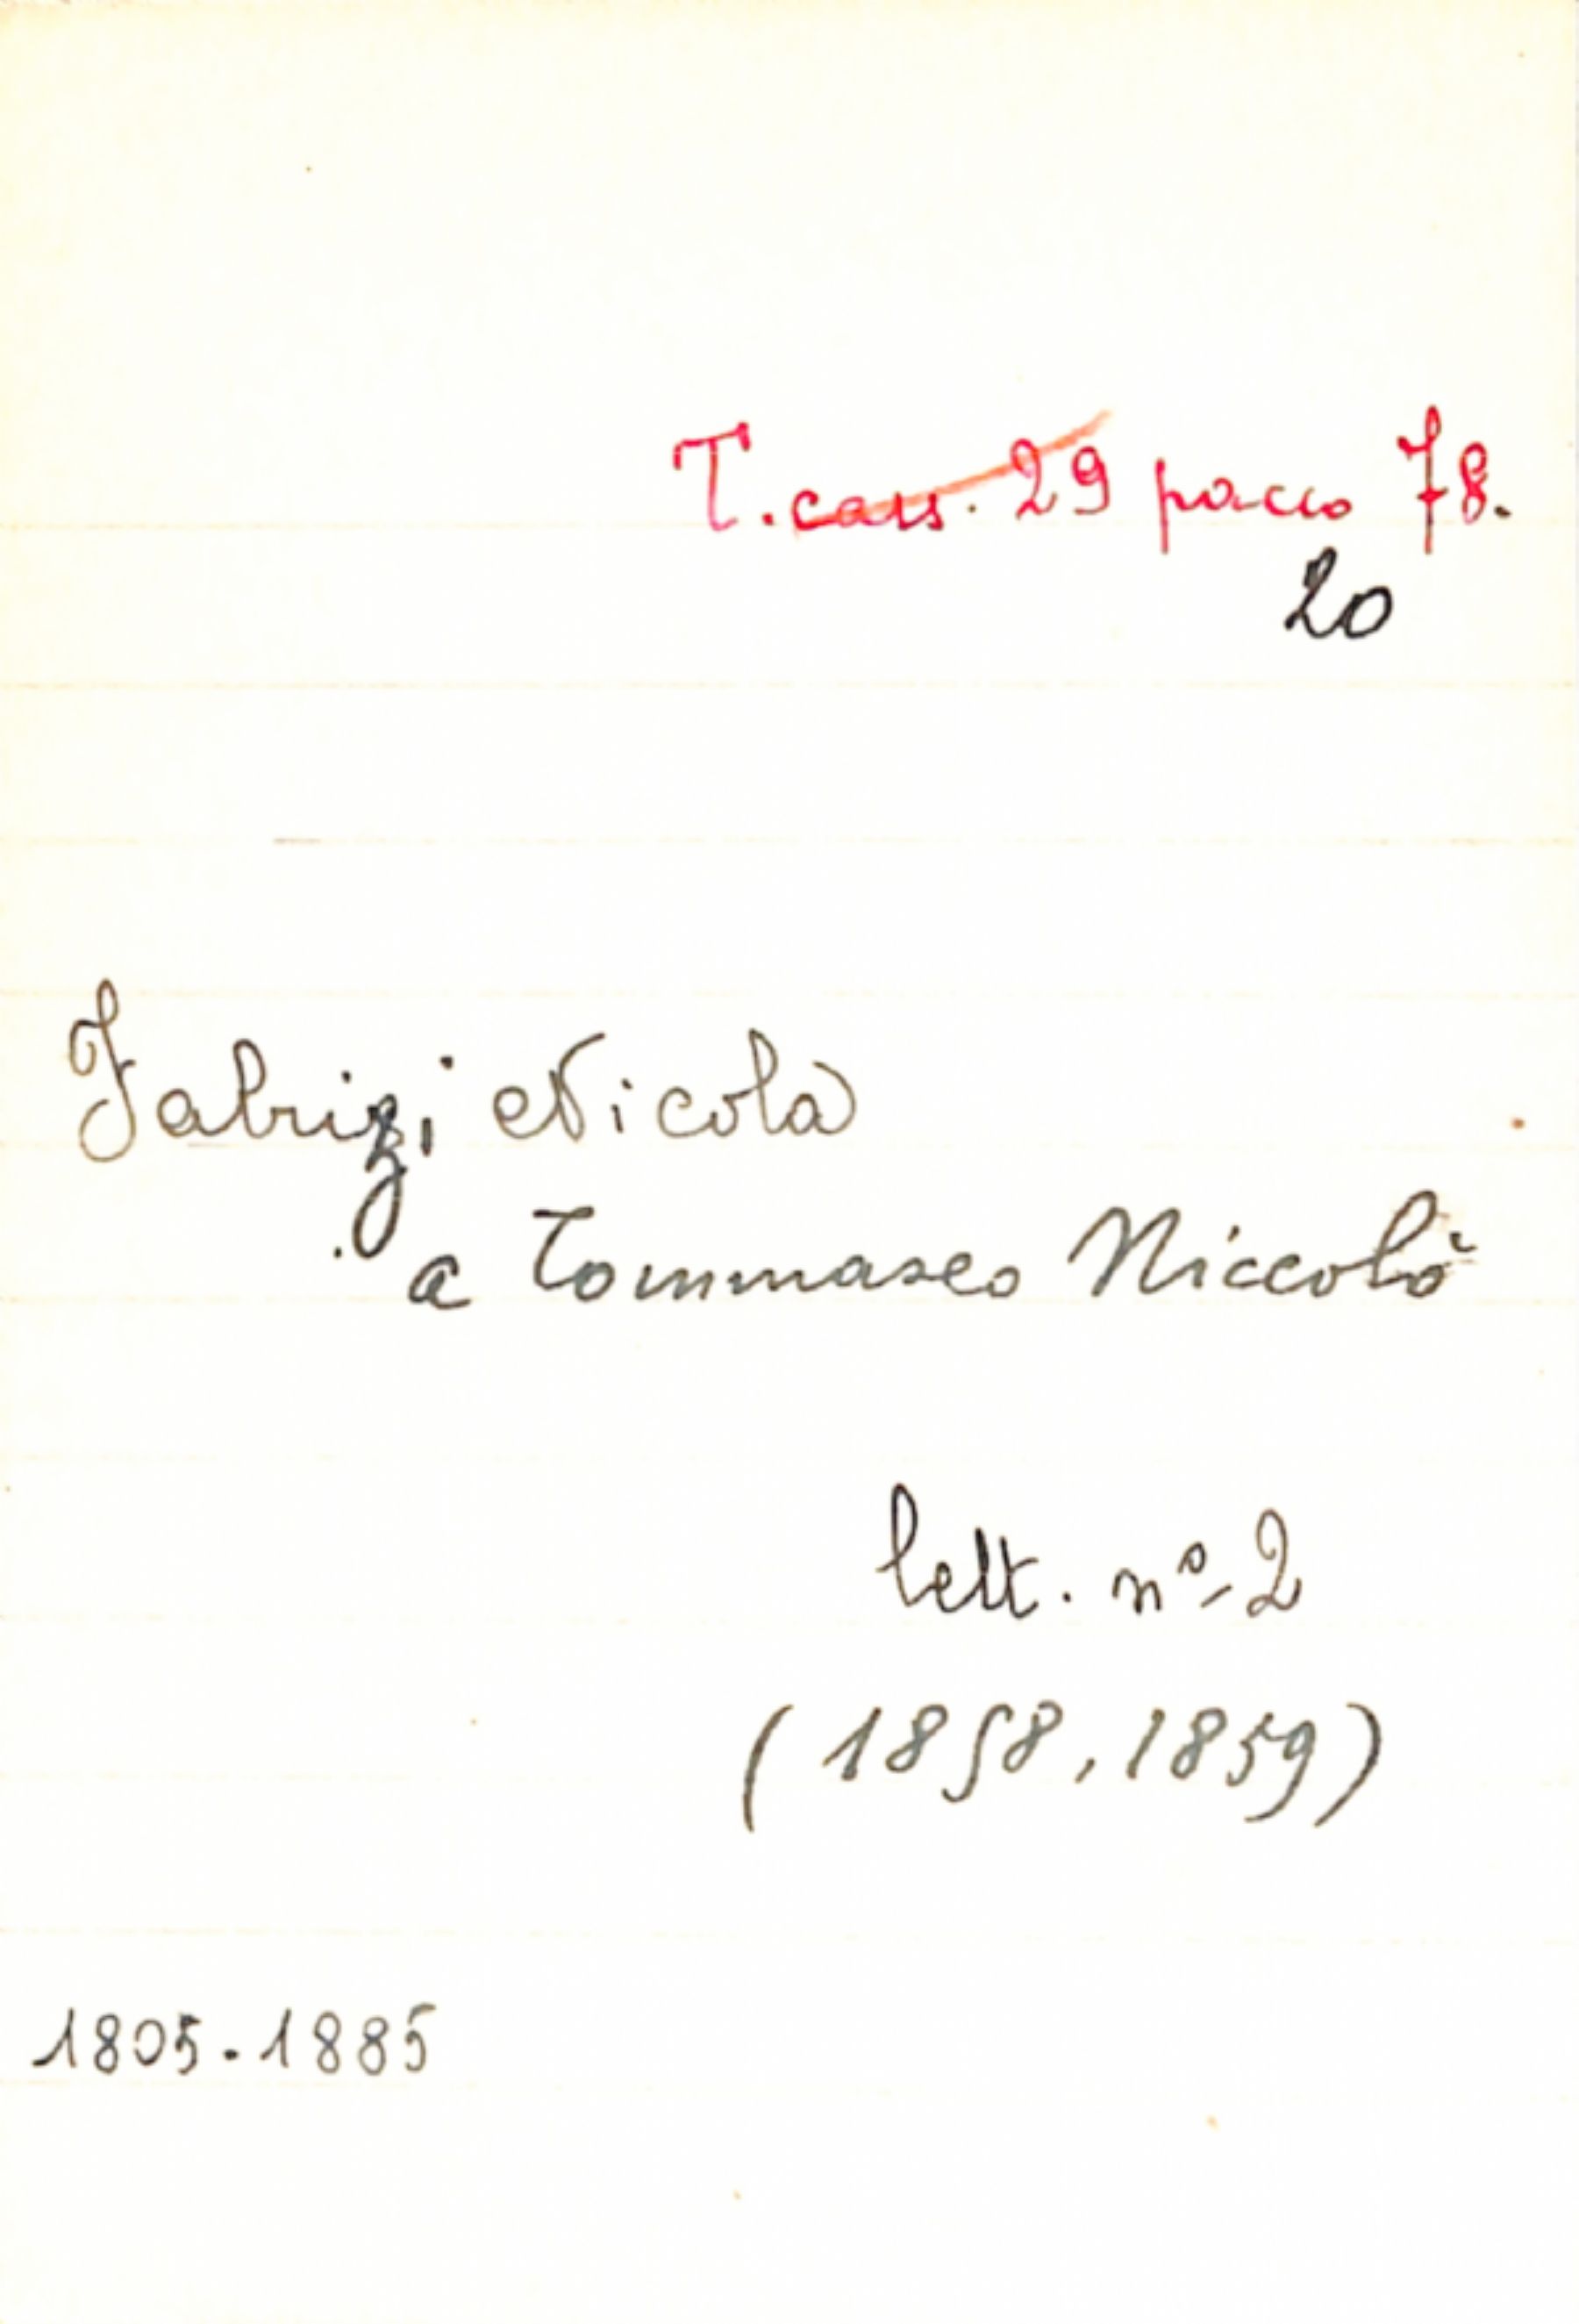 T. cass. 29 pacco 78.
20
Fabrizi Nicola
a Tommaseo Niccolò
lett. nº 2
(1858, 1859)
1805-1885